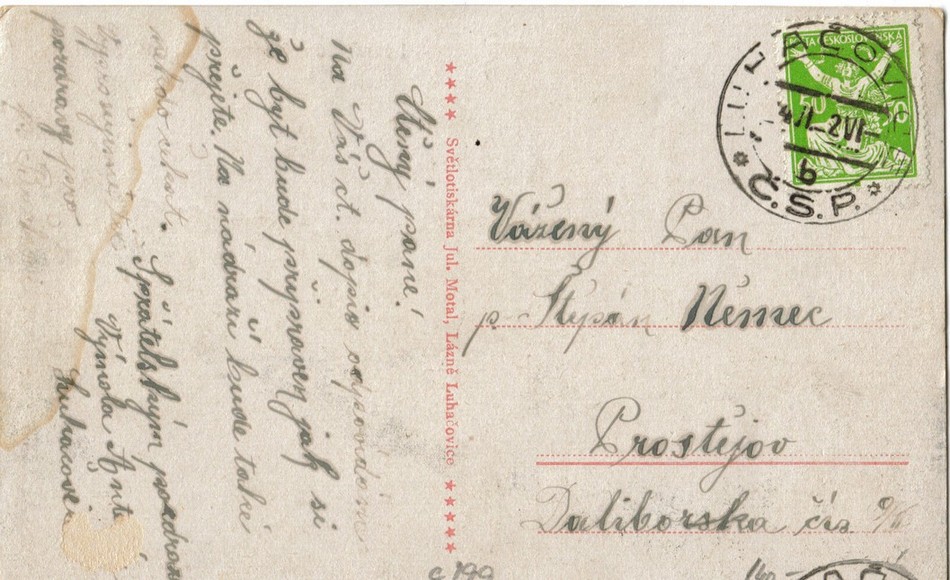 Ctěný pane!
Na Váš ct. dopis odpovídám
že byt bude připraven jak si
přejete. Na nádraží bude také
někdo čekat.
pozdravy
Spřátelským pozdravem
Výmola Ant
Luhačovic
★★★★ Světlotiskárna Jul. Motal, Lázně Luhačovice ★★★★★
POŠTA ČESKOSLOVENSKÁ
50
LUHAČOVI
b
Č.S.P.
Vážený Pan
p. Štěpán Němec
Prostějov
Daliborska čís
c 199